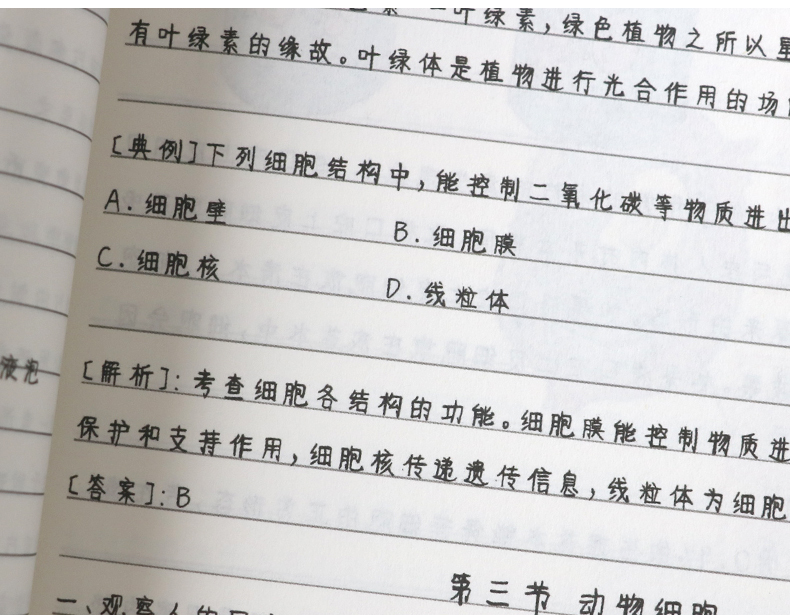 叶绿素，绿色植物之所以呈
有叶绿素的缘故。叶绿体是植物进行光合作用的场
[典例]下列细胞结构中，能控制二氧化碳等物质进出
A.细胞壁 B.细胞膜
C.细胞核 D.线粒体
液泡
[解析]：考查细胞各结构的功能。细胞膜能控制物质进
保护和支持作用，细胞核传递遗传信息，线粒体为细胞
[答案]：B
第三节 动物细胞
一、观察人的口